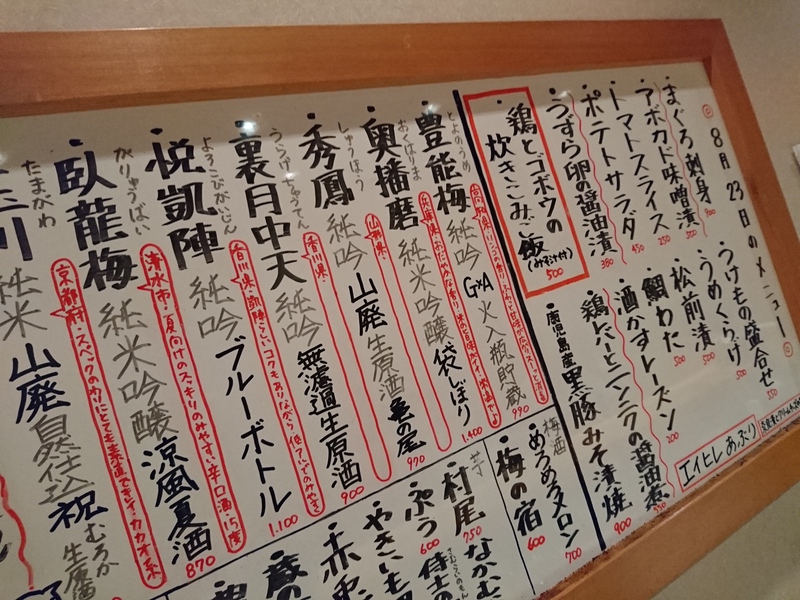 8月23日のメニュー
まぐろ刺身 900
アボカド味噌漬 500
トマトスライス 250
ポテトサラダ 450
うずら卵の醤油漬 380
鶏とゴボウの
炊きこみご飯
(みそ汁付)
500
うけもの盛合せ 550
うめくらげ 500
松前漬 500
鯛わた 500
酒かすレーズン 200
鶏レバとニンニクの醤油煮 550
鹿児島産黒豚みそ漬焼 900
エイヒレあぶり
とよのうめ
豊能梅 純吟 GxA 火入瓶貯蔵 990
おくはりま
奥播磨 純米吟醸 袋しぼり 1,400
兵庫県
しゅうほう
秀鳳 純吟 山廃 生原酒 亀の尾 970
山形県
うらげっちゅうてん
裏月中天 純吟 無濾過生原酒 900
香川県
よろこびがいじん
悦凱陣 純吟 ブルーボトル 1,100
香川県・凱陣らしいコクもありながら
がりゅうばい
臥龍梅 純米吟醸 涼風夏酒 870
清水市・夏向けのスッキリのみやすい辛口酒15度
たまがわ
玉川 純米 山廃 自然仕込 祝 むろか 生原酒
京都府・スペックのわりにとても素直でキレイ、カカオ系
梅酒
めろめろメロン 700
梅の宿 600
芋
村尾 750
なかむ
ぷう 600
侍士の
やきいも
赤
蔵の